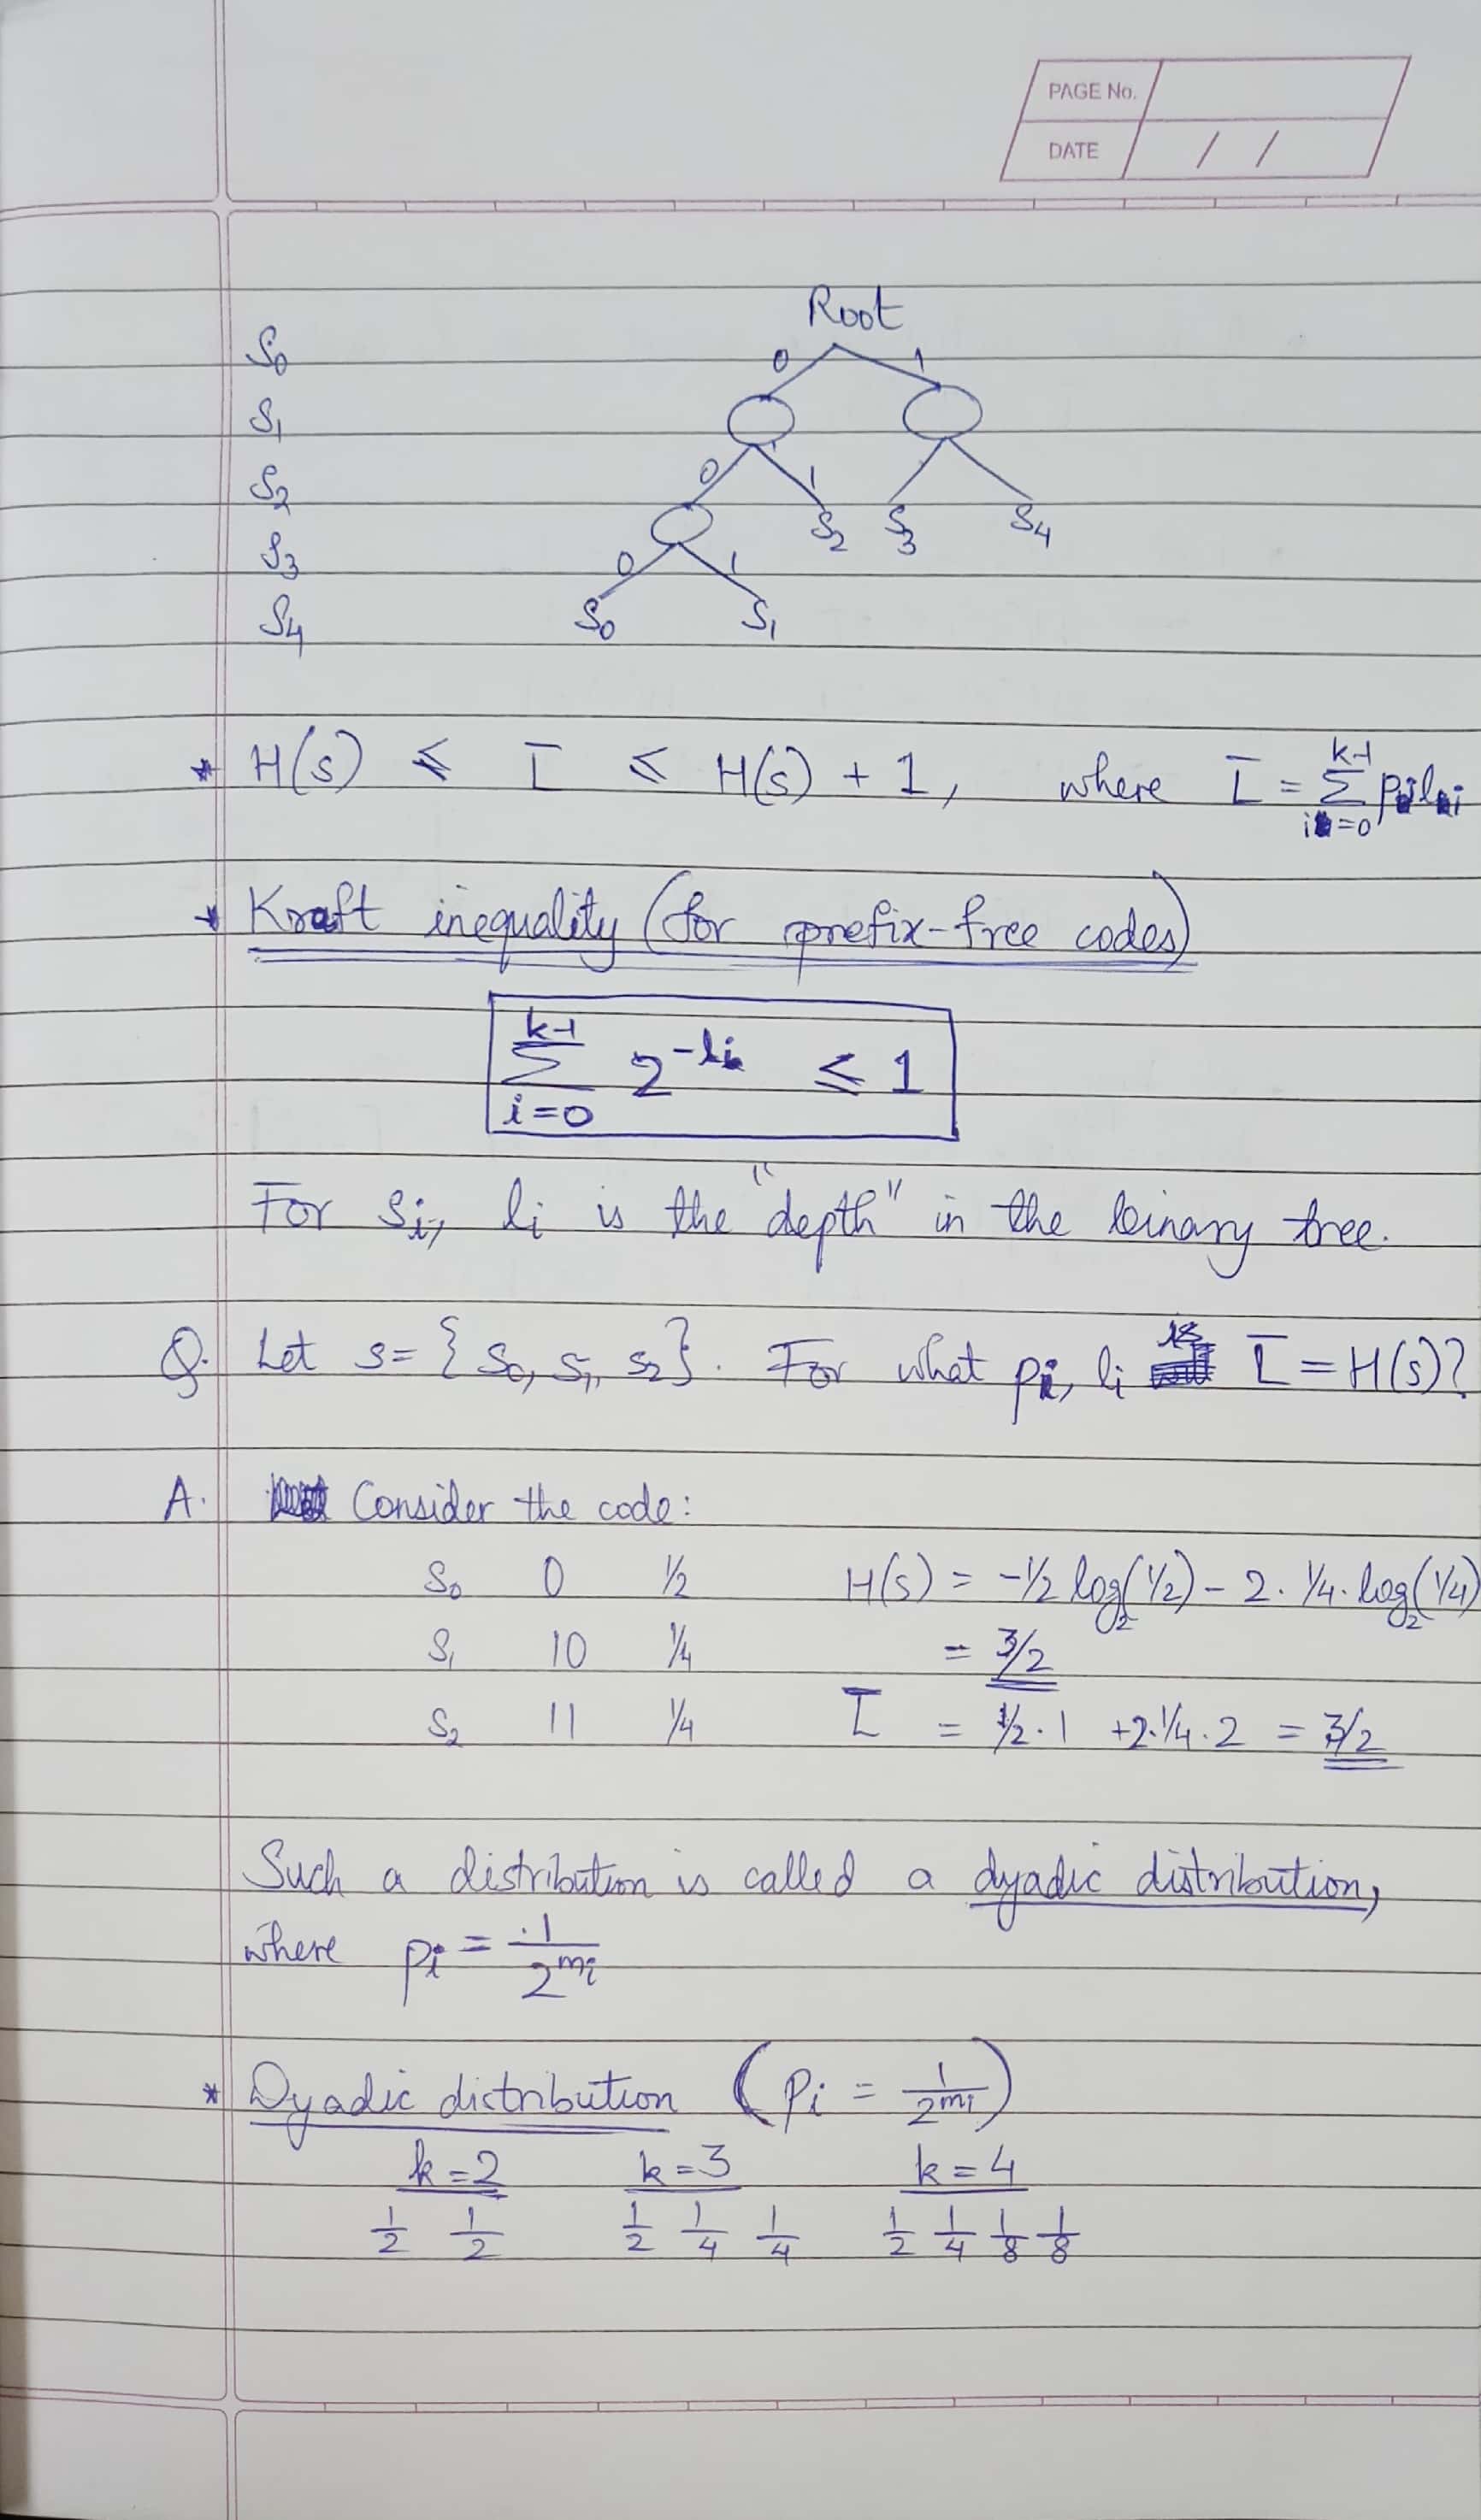 PAGE No.
DATE / /
Root
S₀ 0 1
S₁
S₂ 0 1
S₂ S₃ S₄
S₃ 0 1
S₄ S₀ S₁
* H(s) ≤ L̄ ≤ H(s) + 1, where L̄ = Σ_{i=0}^{k-1} pᵢlᵢ
* Kraft inequality (for prefix-free codes)
Σ_{i=0}^{k-1} 2^{-lᵢ} ≤ 1
For sᵢ, lᵢ is the "depth" in the binary tree.
Q. Let s = {s₀, s₁, s₂}. For what pᵢ, lᵢ is L̄ = H(s)?
A. Consider the code:
S₀ 0 1/2 H(s) = -1/2 log₂(1/2) - 2. 1/4. log₂(1/4)
S₁ 10 1/4 = 3/2
S₂ 11 1/4 L̄ = 1/2 . 1 + 2. 1/4 . 2 = 3/2
Such a distribution is called a dyadic distribution,
where pᵢ = 1/2^{mᵢ}
* Dyadic distribution (pᵢ = 1/2^{mᵢ})
k=2 k=3 k=4
1/2 1/2 1/2 1/4 1/4 1/2 1/4 1/8 1/8